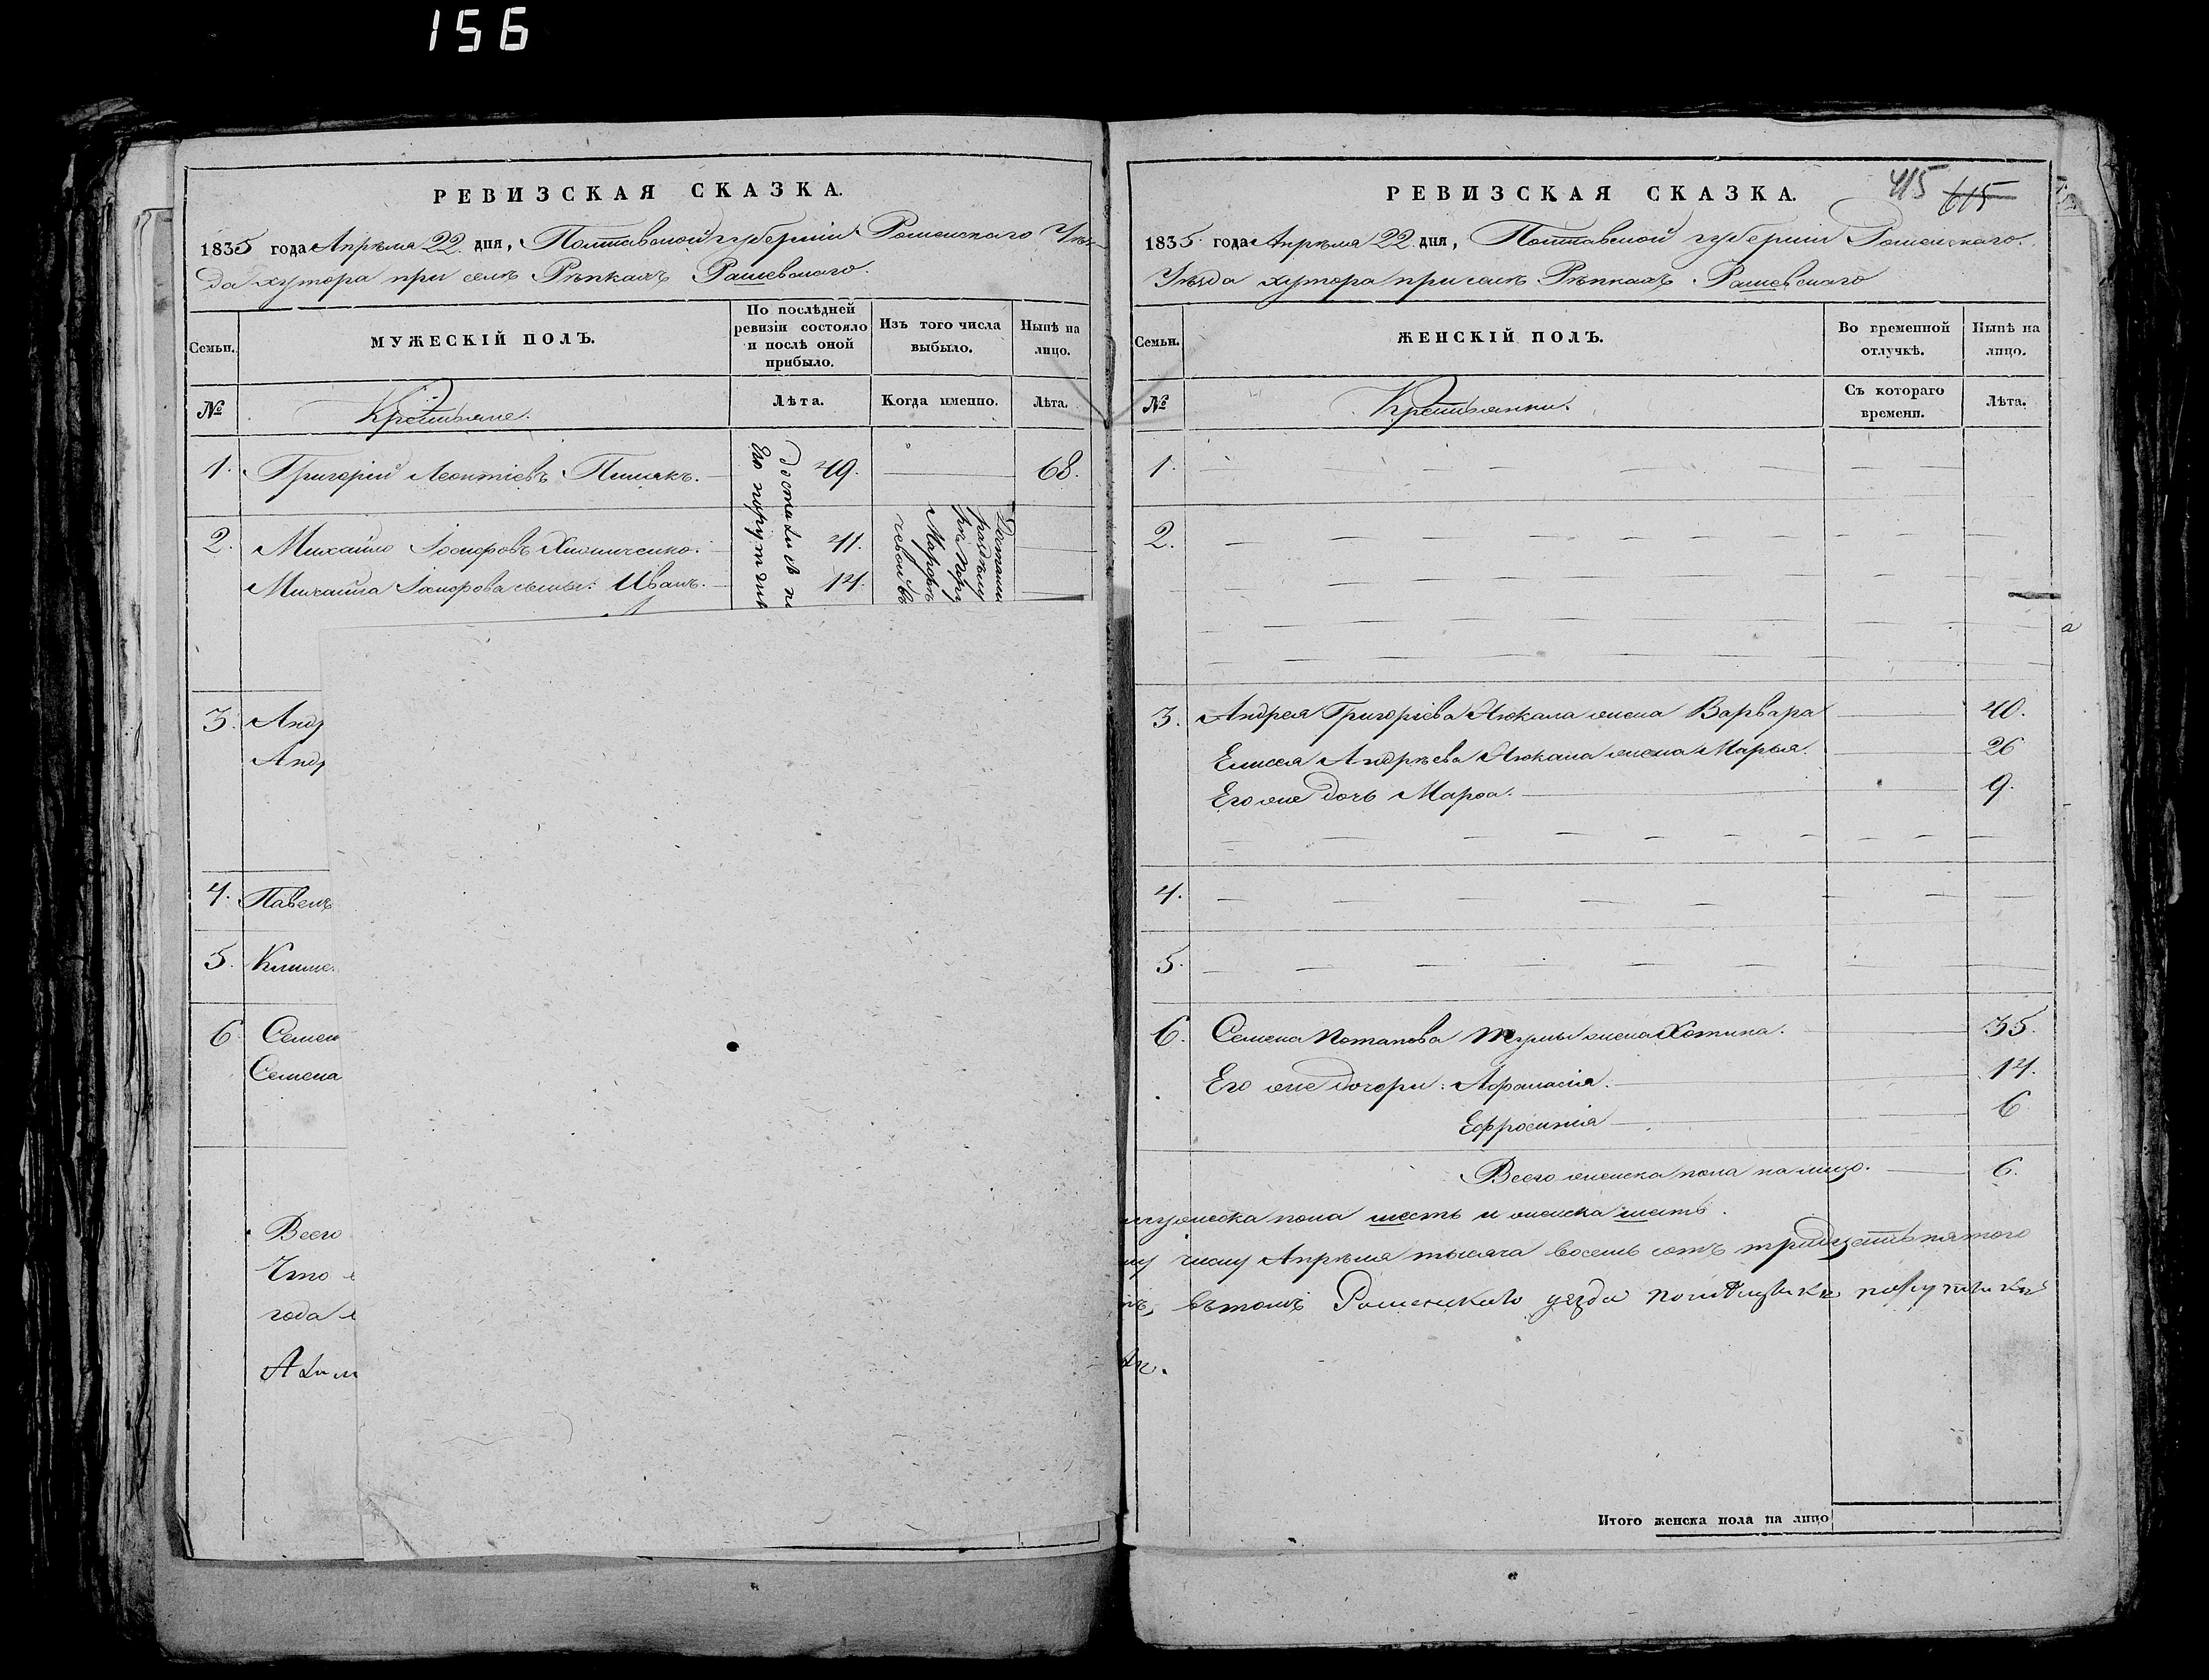 156
РЕВИЗСКАЯ СКАЗКА.
1835 года Апрѣля 22 дня, Полтавской губерніи Роменскаго Уѣз-
да хутора при селѣ Рѣпкахъ Рашевскаго.
Семьи.
МУЖЕСКІЙ ПОЛЪ.
По послѣдней ревизіи состояло и послѣ оной прибыло.
Изъ того числа выбыло.
Нынѣ на лицо.
№
Крестьяне.
Лѣта.
Когда именно.
Лѣта.
1. Григорій Леонтіевъ 49. 68.
2. Михайло 41.
Михайла сынъ: Иванъ. 14.
достались
3. Анд
Анд
4. Павелъ
5. Климе
6 Семен
Семена
Всего
Что
года
РЕВИЗСКАЯ СКАЗКА.
415 615
1835 года Апрѣля 22 дня, Полтавской губерніи Роменскаго
Уѣзда хутора при селѣ Рѣпкахъ Рашевскаго
Семьи.
ЖЕНСКІЙ ПОЛЪ.
Во временной отлучкѣ.
Нынѣ на лицо.
№
Крестьянки.
Съ котораго времени.
Лѣта.
1.
2.
3. Андрея Григорієва жена Варвара 40.
Елисея Андрѣева жена Марья. 26
Его же дочь Марѳа. 9.
4.
5.
6. Семена Потапова жена 35.
Его же дочери: Афанасія. 14.
Ефросинія 6
Всего женска пола на лицо. 6.
мужеска пола шесть и женска шесть.
му числу Апрѣля тысяча восемь сотъ тридцать пятого
въ томъ Роменскаго уезда
Итого женска пола на лицо